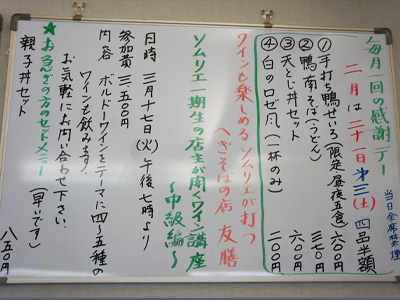 毎月一回の感謝デー
当日全席禁煙
二月は二十一日第三(土)四品半額
①手打ち鴨せいろ(限定昼夜五食)六〇〇円
②鴨南そば(うどん)三五〇円
③天とじ丼セット六〇〇円
④白のロゼ風(一杯のみ)二〇〇円
ワインも楽しめるソムリエが打つ
へぎそばの店友膳
ソムリエ一期生の店主が開くワイン講座
〜中級編〜
日時三月十七日(火)午後七時より
参加費三、五〇〇円
内容ボルドーワインをテーマに四〜五種の
ワインも飲みます。
お気軽にお問い合わせ下さい。
★おるんぎの方のセットメニュー
親子丼セット(早いです)八五〇円